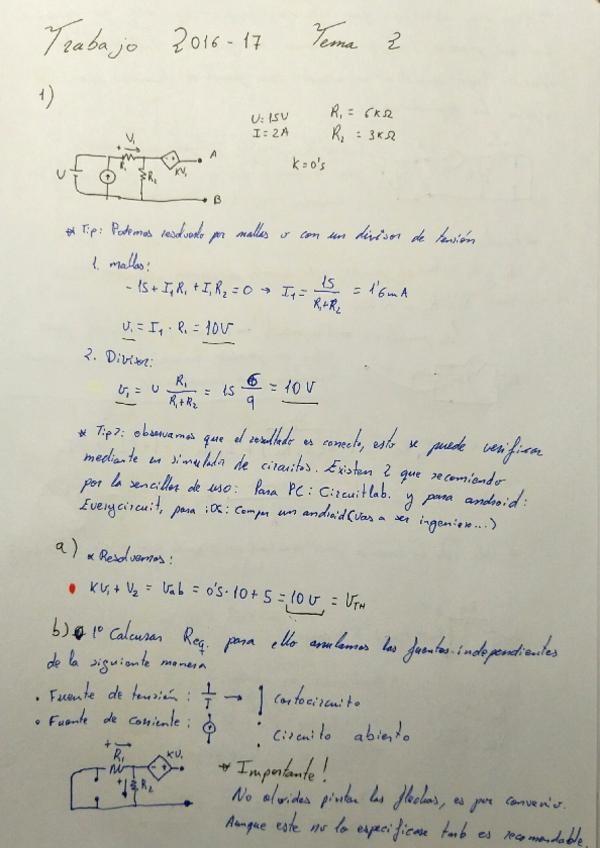 Trabajo 2016-17 Tema 2
1)
U=15V R₁ = 6kΩ
I=2A R₂ = 3kΩ
K=0's
V₁
+
U
R₁
R₂
KV₁
A
B
* Tip: Podemos resolverlo por mallas o con un divisor de tensión
1. mallas:
-15+I₁R₁+I₁R₂=0 → I₁= 15/(R₁+R₂) = 1'6mA
U₁=I₁·R₁=10V
2. Divisor:
U₁ = U R₁/(R₁+R₂) = 15 6/9 = 10V
* Tip2: observamos que el resultado es correcto, esto se puede verificar
mediante un simulador de circuitos. Existen 2 que recomiendo
por la sencillez de uso: Para PC: Circuitlab. y para android:
Everycircuit, para iOS: Compra un android (vas a ser ingeniero...)
a) * Resolvemos:
• KV₁ + V₂ = Vab = 0's·10+5 = 10V = V_TH
b) 1º Calcular Req. para ello anulamos las fuentes independientes
de la siguiente manera
• Fuente de tensión: → cortocircuito
• Fuente de corriente: Circuito abierto
+
R₁
KV₁
+
R₂
* Importante!
No olvides pintar las flechas, es por convenio.
Aunque este no lo especificase tamb es recomendable.